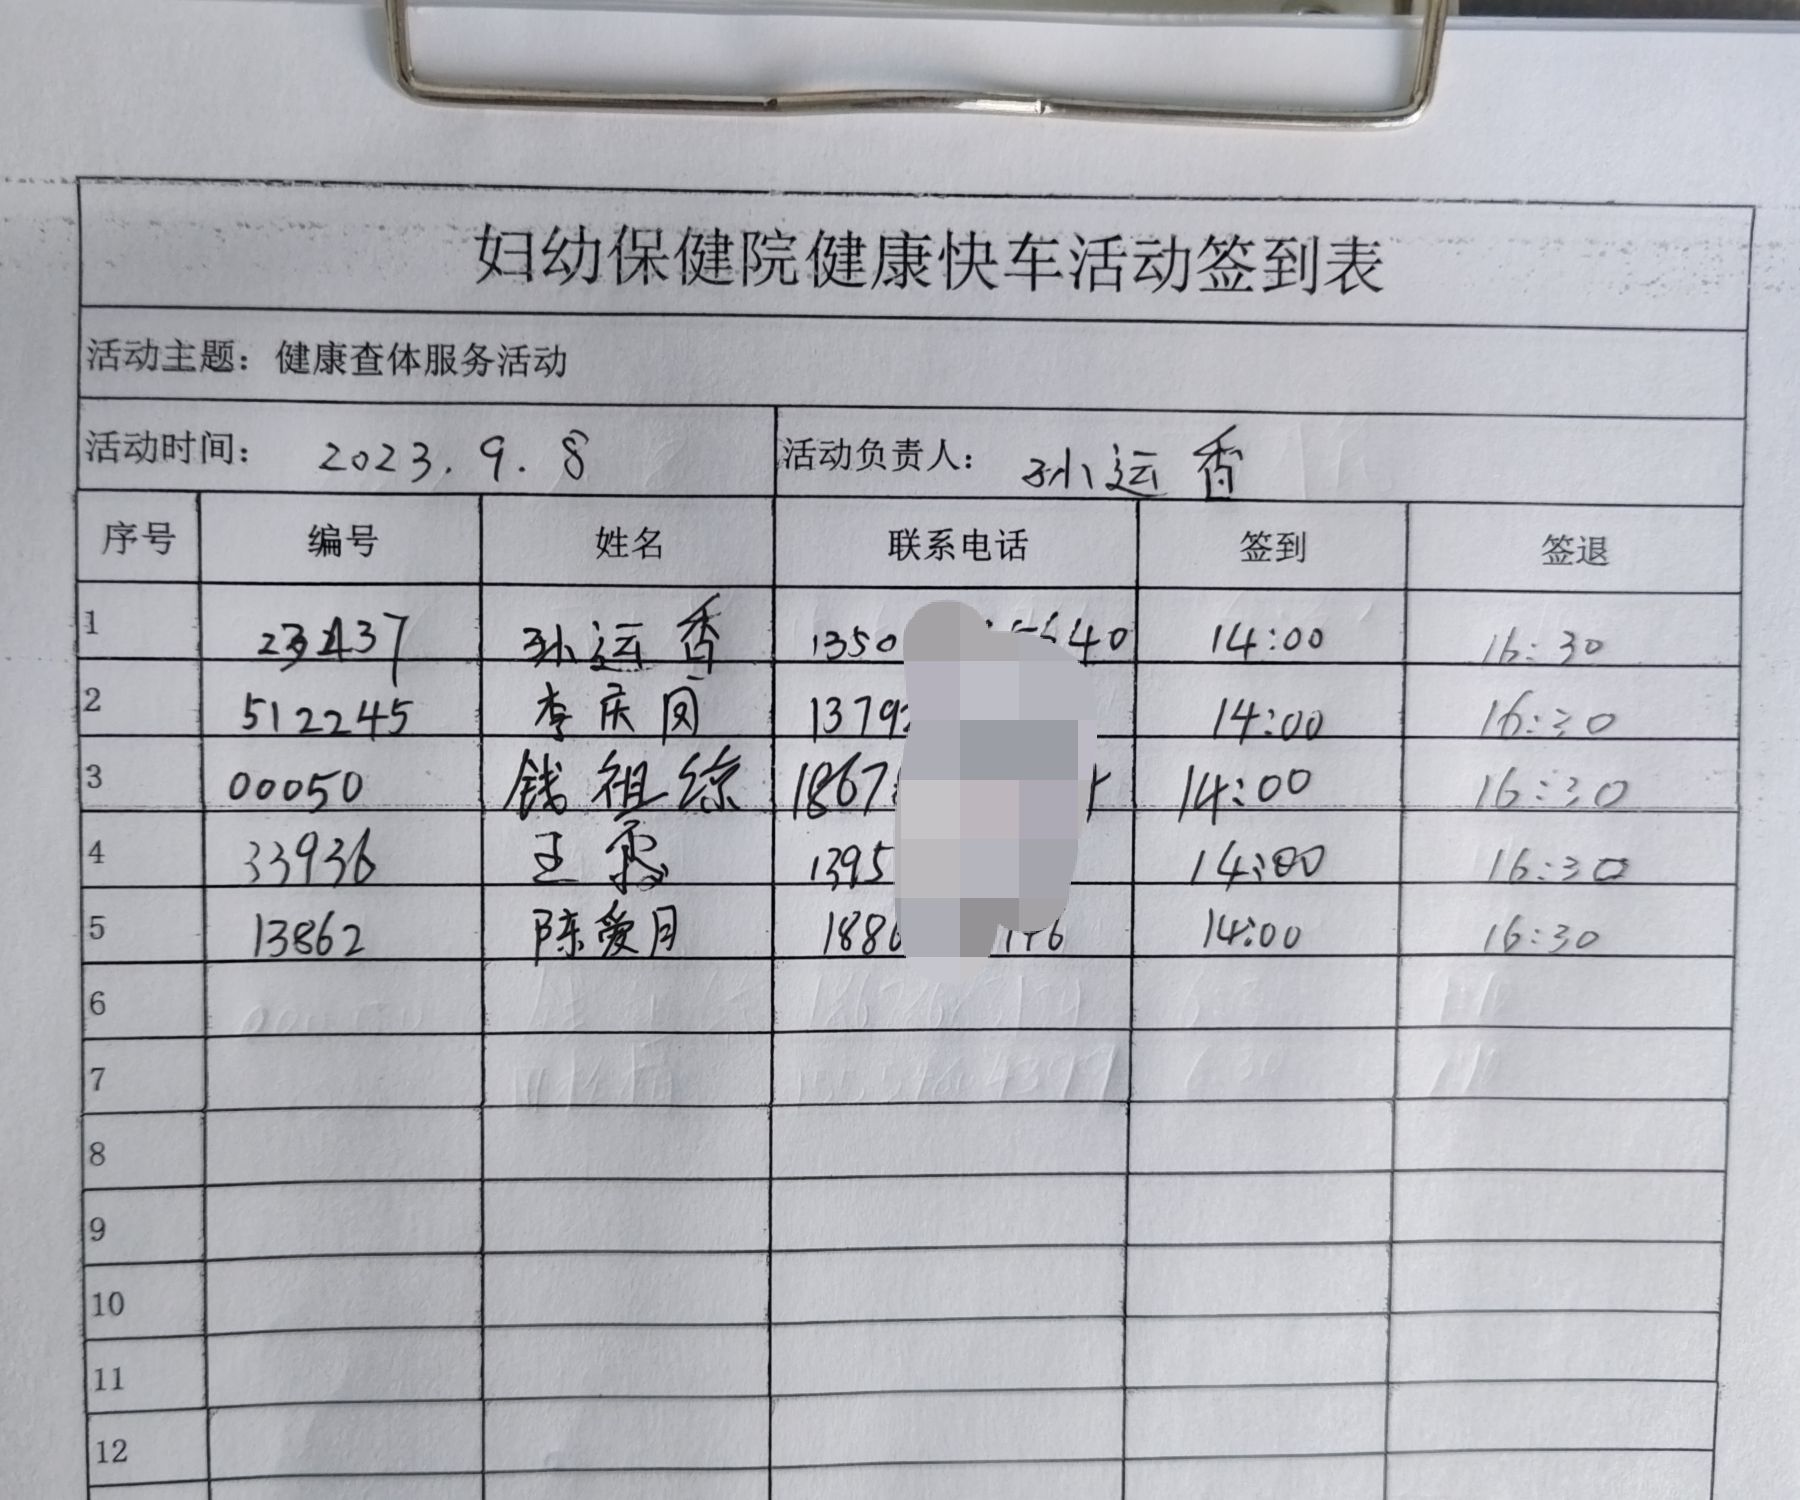 妇幼保健院健康快车活动签到表
活动主题：健康查体服务活动
活动时间： 2023.9.8 活动负责人： 孙运香
序号 编号 姓名 联系电话 签到 签退
1 23437 孙运香 1350 40 14:00 16:30
2 512245 李庆凤 1379 14:00 16:30
3 00050 钱祖综 1867 14:00 16:30
4 33936 王 1395 14:00 16:30
5 13862 陈爱月 188 14:00 16:30
6
7
8
9
10
11
12